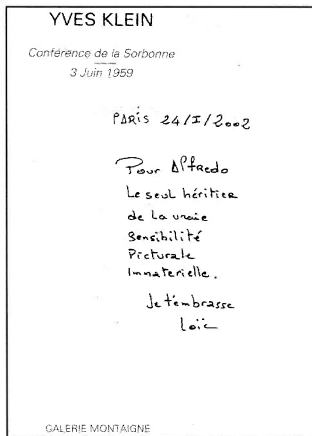 YVES KLEIN
Conférence de la Sorbonne
3 Juin 1959
PARIS 24/I/2002
Pour Alfredo
Le seul héritier
de La vraie
Sensibilité
Picturale
Immaterielle.
Je t'embrasse
Loïc
GALERIE MONTAIGNE